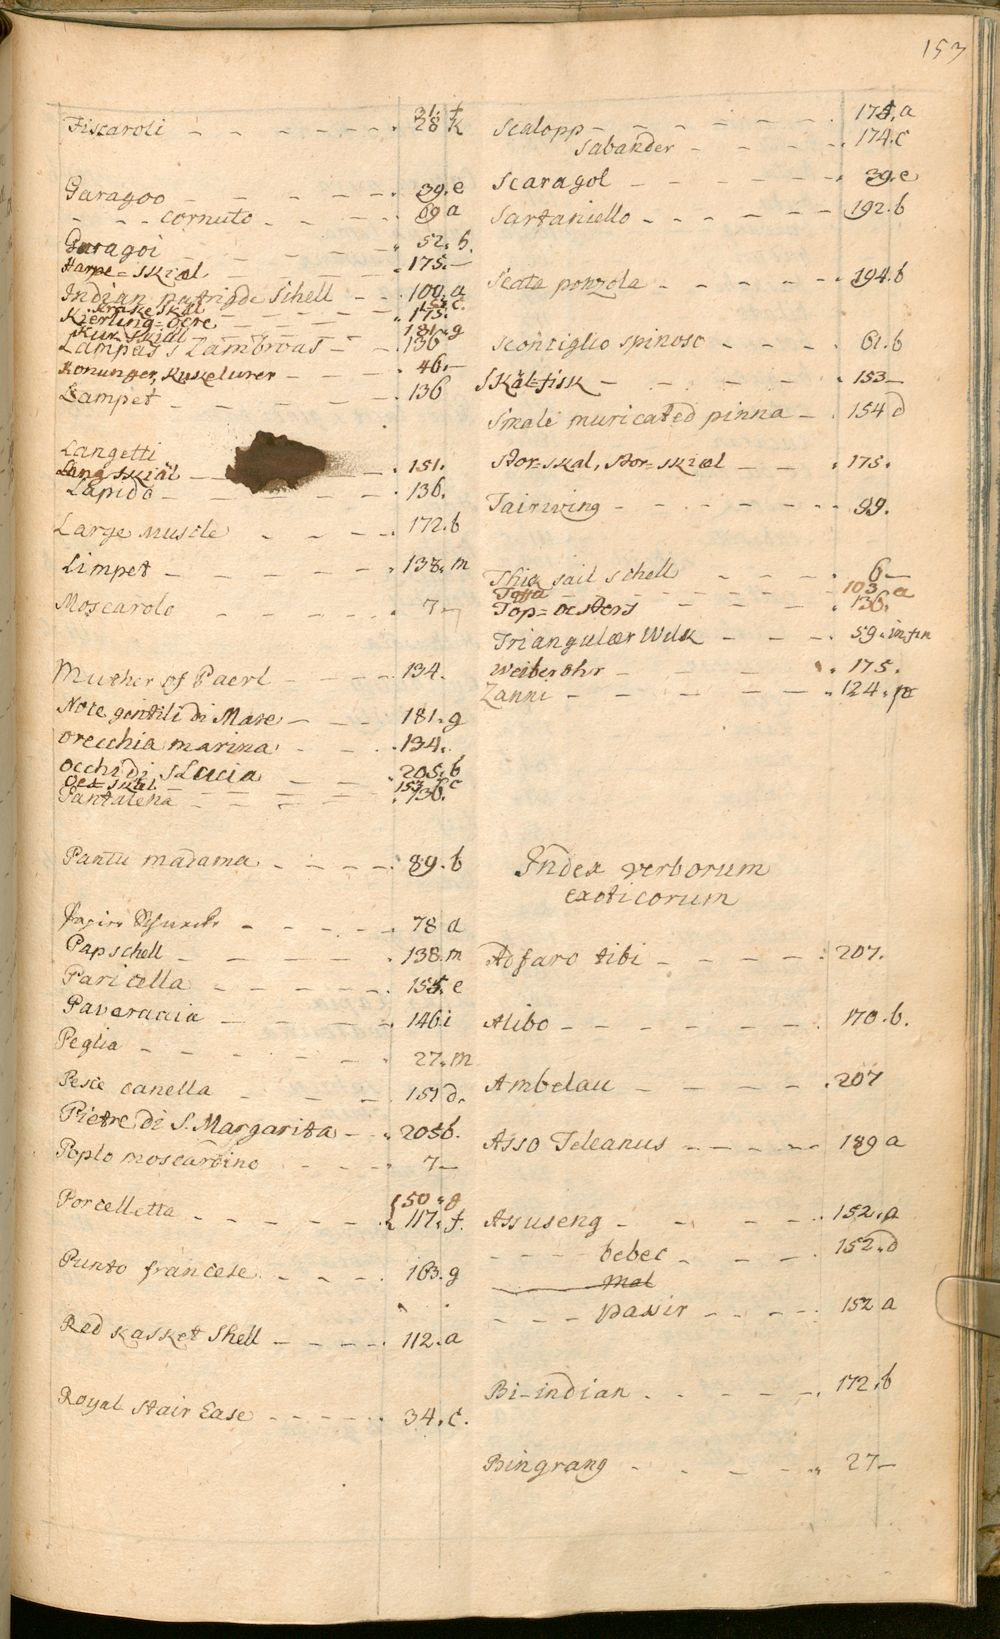 157
31. f
Fiscaroli - - - - - - . 28 K
Garagoo - - - - - . 39. e
- - - cornuto - - - - . 69 a
Garagoi - - - - - . 52. b.
Harpe-skiæl - - - - - . 175. -
Indian patrigde Schell - - . 100. a
Kræke skal - - - - - 153. c.
Kierling-öere - - - - - . 175.
Kur-skiæl 181. g
Lampass Zambroas - - . 136
Konunger, Kukelurer - - - . 46. -
Lampet - - - - - - 136
Langetti
Lang Skiäl - - . 151.
Lapido - - - - . 136.
Large muscle - - - - . 172. b
Limpet - - - - - - . 138. m
Moscarolo - - - - . 7 -
Muther of Paerl - - - - . 134.
Noce gentili di Mare - - - . 181. g
orecchia marina - - - . 134.
occhi di S Lucia - - - . 205. b
Oes-skiel - - - - 153. c
Pantalena - - - - . 136.
Pantu madama - - - - . 89. b
- - - - . 78 a
Papschell - - - - - - . 138. m
Paricella - - - - - - . 155. e
Paveraccia - - - - - . 146. i
Peglia - - - - - - . 27. m
Pesce canella - - - - 151 d.
Pietre di S. Margarita - - . 205 b.
Poplo moscardino - - - - 7 -
Porcelletta - - - - - - . { 50. g
117. f.
Punto francese. - - - - . 163. g
Red Kasket Shell - - - - . 112. a
Royal Stair Ease - - - - - - 34. c.
Scalopp - - - - - - . 175. a
Sabander - - - - . 174. c
Scaragol - - - - - - 39. e
Sartaniello - - - - - . 192. b
Scata ponzola - - - - - . 194. b
Sconciglio spinoso - - - - . 61. b
Skäl-fisk - - - - - - . 153 -
Smale muricated pinna - . 154 d
Stor-skal, Stor-skiæl - - . 175.
Tairwing - - - - - - 99.
Thick sail schell - - - . 6 -
Toffa - - - - - - 103. a
Top-oesters - - - - . 136.
Triangulær Wilk - - - . 59. in fin
Weiberohr - - - - . 175.
Zanni - - - - - - . 124. p
Index verborum
exoticorum
Adfaro tibi - - - - : 207.
Alibo - - - - - - . 170. b.
Ambelau - - - - . 207
Asso Teleanus - - - - - 189 a
Assuseng - - - - - . 152. a
- - - - bebec - - - . 152. d
- - - - mal
- - - - passir - - - - . 152 a
Bi-indian - - - - - . 172. b
Bingrang - - - - - . 27 -